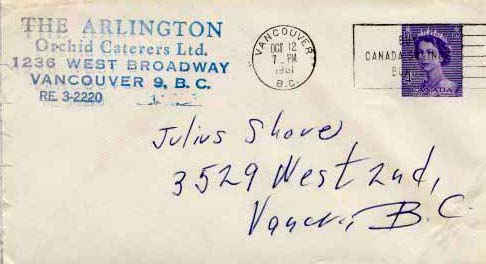 THE ARLINGTON
Orchid Caterers Ltd.
1236 WEST BROADWAY
VANCOUVER 9, B. C.
RE. 3-2220
VANCOUVER
OCT 12
7 - PM
1961
B.C.
CANADA
CANADA
Julius Shore
3529 West 2nd,
B.C.